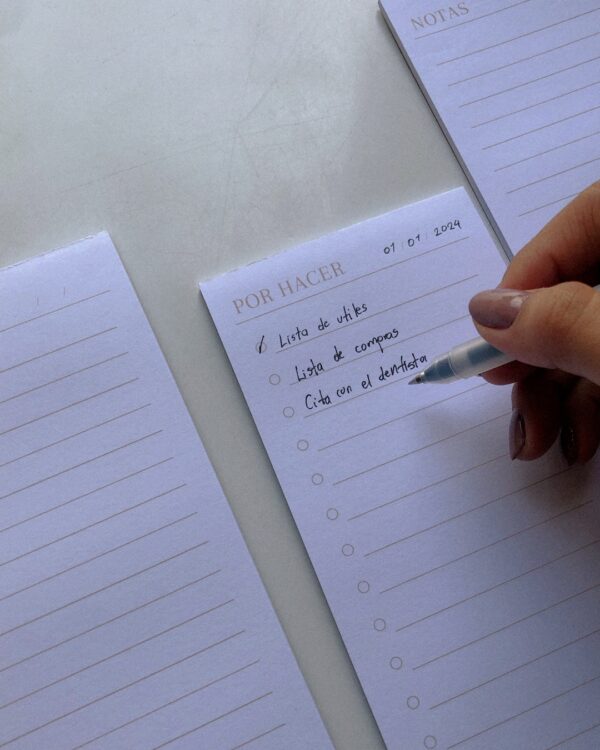 NOTAS
POR HACER
01/01/2024
Lista de utiles
Lista de compras
Cita con el dentista